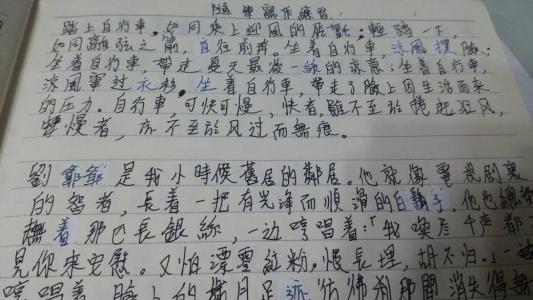 隨筆寫作練習
踏上自行車,如同乘上迎風的
如同離弦之箭,自往前奔。坐着自行車,涼風撲臉;
坐着自行車帶走夏天最後一絲的凉意;坐着自行車,
涼風輕过衣衫。坐着自行車,帶走了臉上因生活而來
的压力。自行車可快可慢,快者,雖不至於捲起狂风,
慢者,亦不至於风过而無痕。
劉爺爺是我小時候舊居的鄰居。他就像電視剧裏
的智者,長着一把有光泽而順滑的白鬍子,他也總
撫着那巴長銀絲,一边哼唱着:「我喚左千声都
見你來安慰。又怕漂零紅粉,恨長埋,胡不归。」一边
哼唱着,臉上的歲月足迹彷彿刹那間消失得無